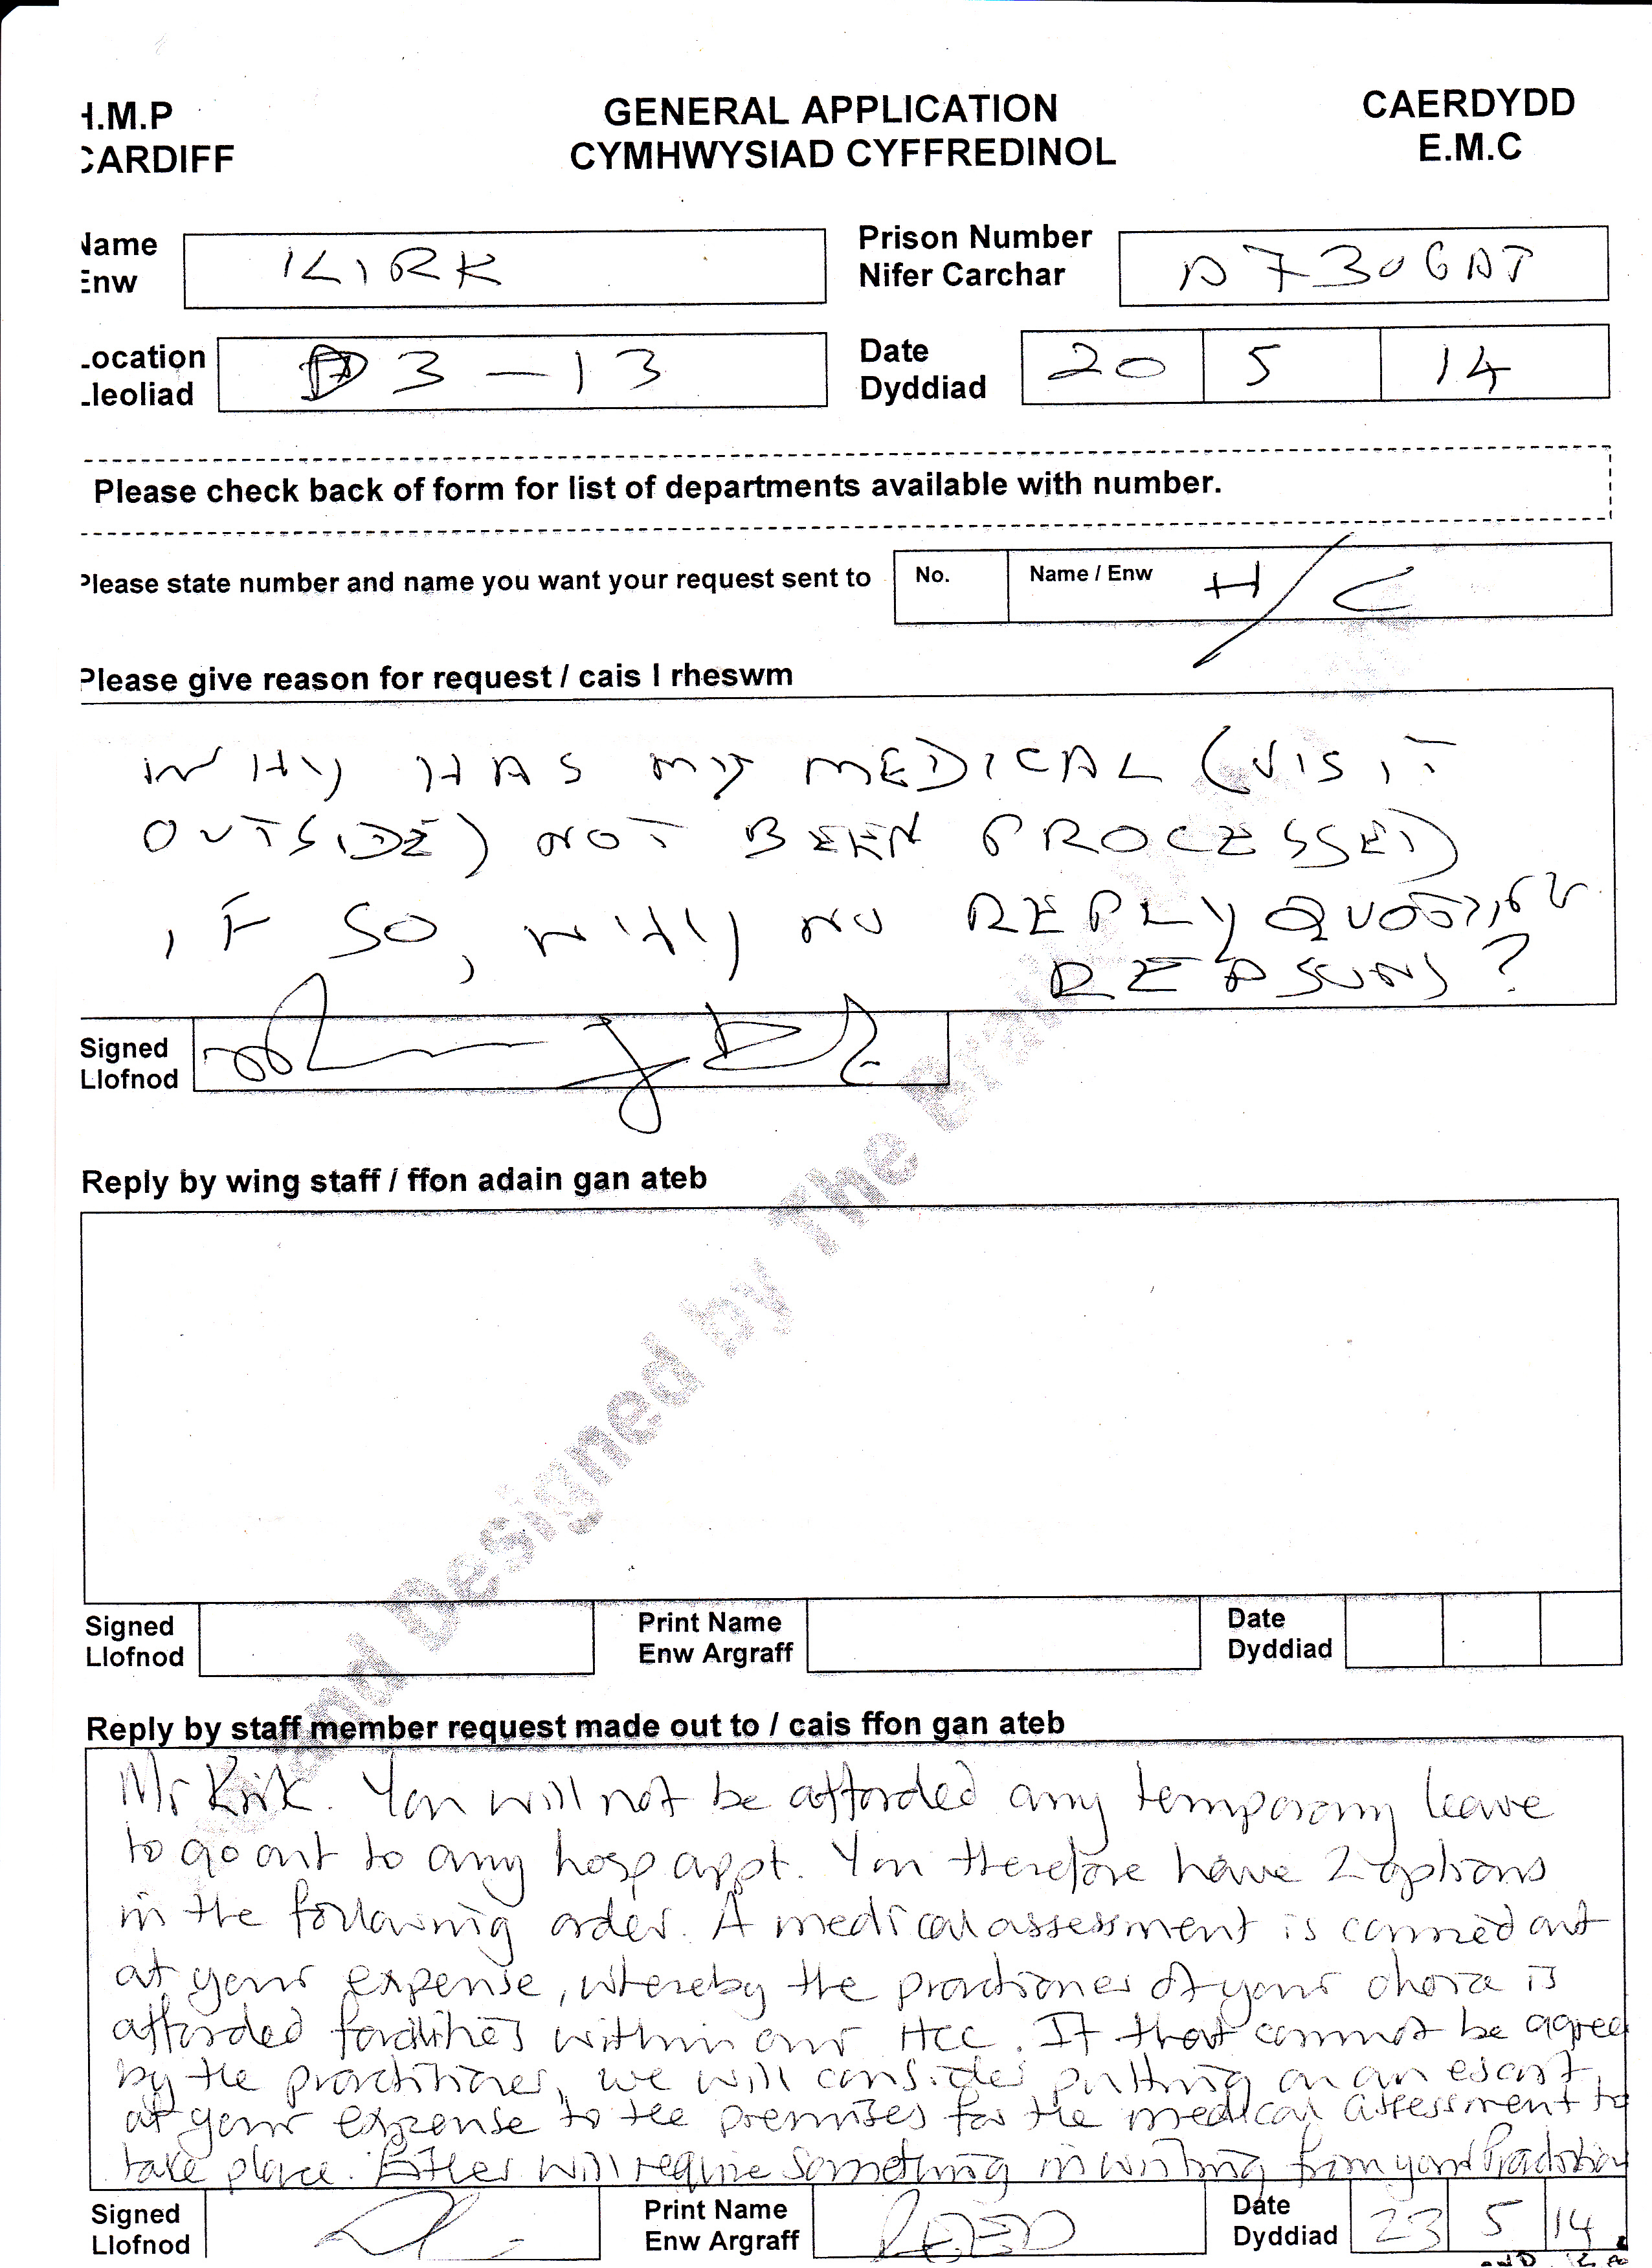 H.M.P
CARDIFF
GENERAL APPLICATION
CYMHWYSIAD CYFFREDINOL
CAERDYDD
E.M.C
Name
Enw
KIRK
Prison Number
Nifer Carchar
A7306AT
Location
Lleoliad
D3-13
Date
Dyddiad
20 5 14
Please check back of form for list of departments available with number.
Please state number and name you want your request sent to
No.
Name / Enw
H/C
Please give reason for request / cais I rheswm
WHY HAS MY MEDICAL (VISIT
OUTSIDE) NOT BEEN PROCESSED
IF SO, WHY NO REPLY QUOTING
REASONS?
Signed
Llofnod
Reply by wing staff / ffon adain gan ateb
Signed
Llofnod
Print Name
Enw Argraff
Date
Dyddiad
and Designed by The
Reply by staff member request made out to / cais ffon gan ateb
Mr Kirk. You will not be afforded any temporary leave
to go out to any hosp appt. You therefore have 2 options
in the following order. A medical assessment is carried out
at your expense, whereby the practioner of your choice is
afforded facilities within our HCC. If that cannot be agreed
by the practitioner, we will consider putting on an escort,
at your expense to the premises for the medical assessment to
take place. Either will require something in writing from your
Signed
Llofnod
Print Name
Enw Argraff
REED
Date
Dyddiad
23 5 14